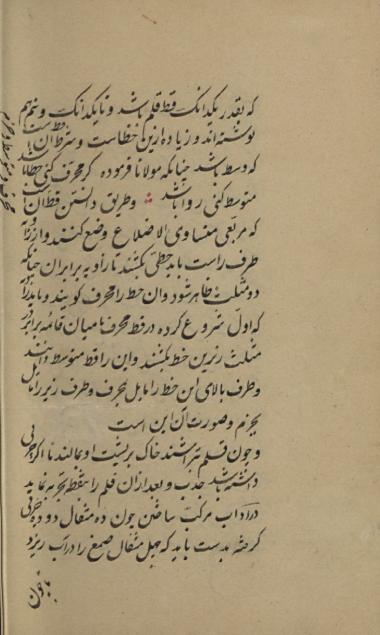 که بقدر یکدانک قط قلم باشد و تا یکدانک و نیم هم
نوشته‌اند و زیاده ازین خطاست و شرط آن
که وسط باشد چنانکه مولانا فرموده که محرف کنی خطا
متوسط کنی روا باشد و طریق دانستن قط آن
که مربعی متساوی الاضلاع وضع کنند و از
طرف راست باید خطی بکشند تا زاویه برابر آن چنانکه
دو مثلث ظاهر شود و آن خط را محرف گویند و باید
که اول شروع کرده در قط محرف تا میان قائمه برابر
مثلث زیرین خط بکشند و این را قط متوسط دانند
و طرف بالای این خط را مایل بحرف و طرف زیر را مایل
بجزم و صورت آن این است
و چون قلم تراشند خاک بر پشت او بمالند تا اگر چربی
داشته باشد جذب و بعد از آن قلم را بنقطه تجربه نماید
در آداب مرکب ساختن چون ده مثقال دوده چربی
گرفته بدست باید که چهل مثقال صمغ را در آب ریزد
تا چون